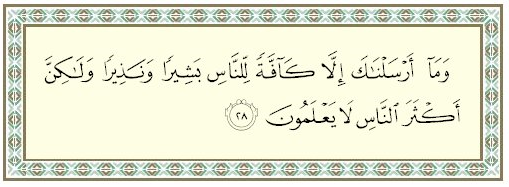 وَمَآ أَرْسَلْنَٰكَ إِلَّا كَآفَّةً لِّلنَّاسِ بَشِيرًا وَنَذِيرًا وَلَٰكِنَّ
أَكْثَرَ ٱلنَّاسِ لَا يَعْلَمُونَ ٢٨